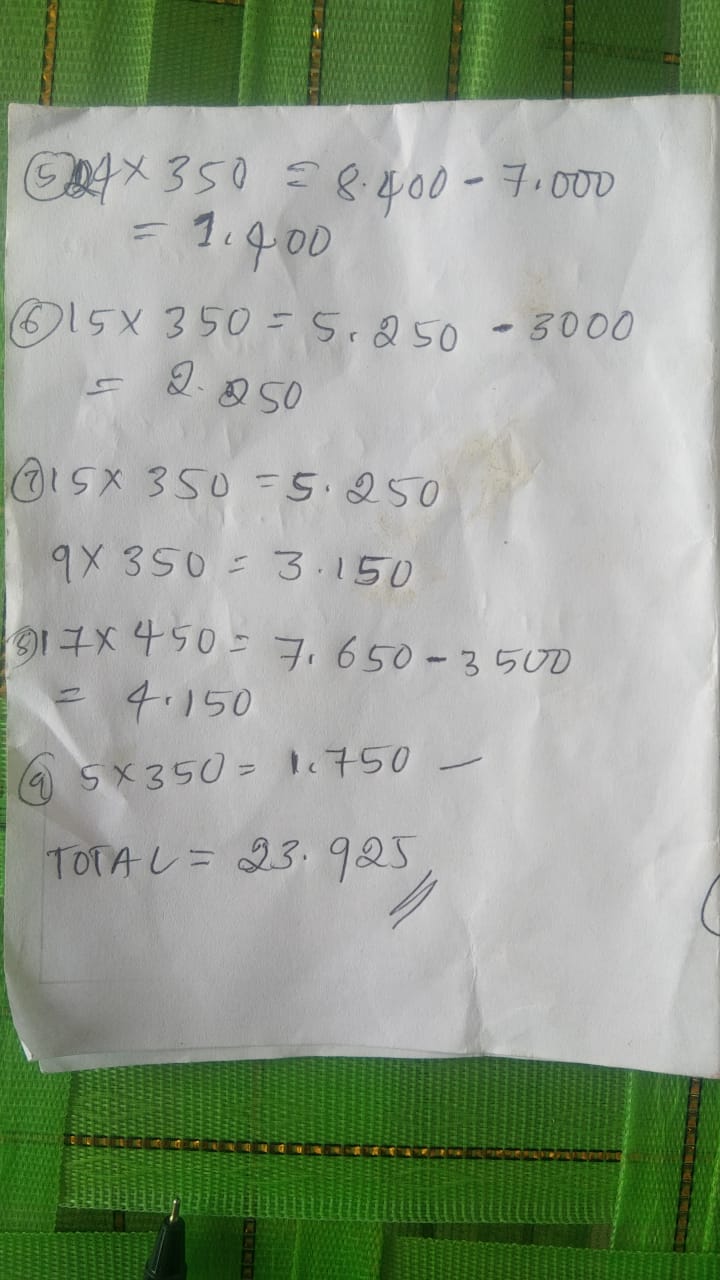 ⑤ 24 × 350 = 8.400 - 7.000
= 1.400
⑥ 15 × 350 = 5.250 - 3000
= 2.250
⑦ 15 × 350 = 5.250
9 × 350 = 3.150
⑧ 17 × 450 = 7.650 - 3500
= 4.150
⑨ 5 × 350 = 1.750 —
TOTAL = 23.925